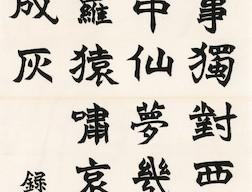 事獨對西
中仙夢幾
猿嘯哀
成灰
錄